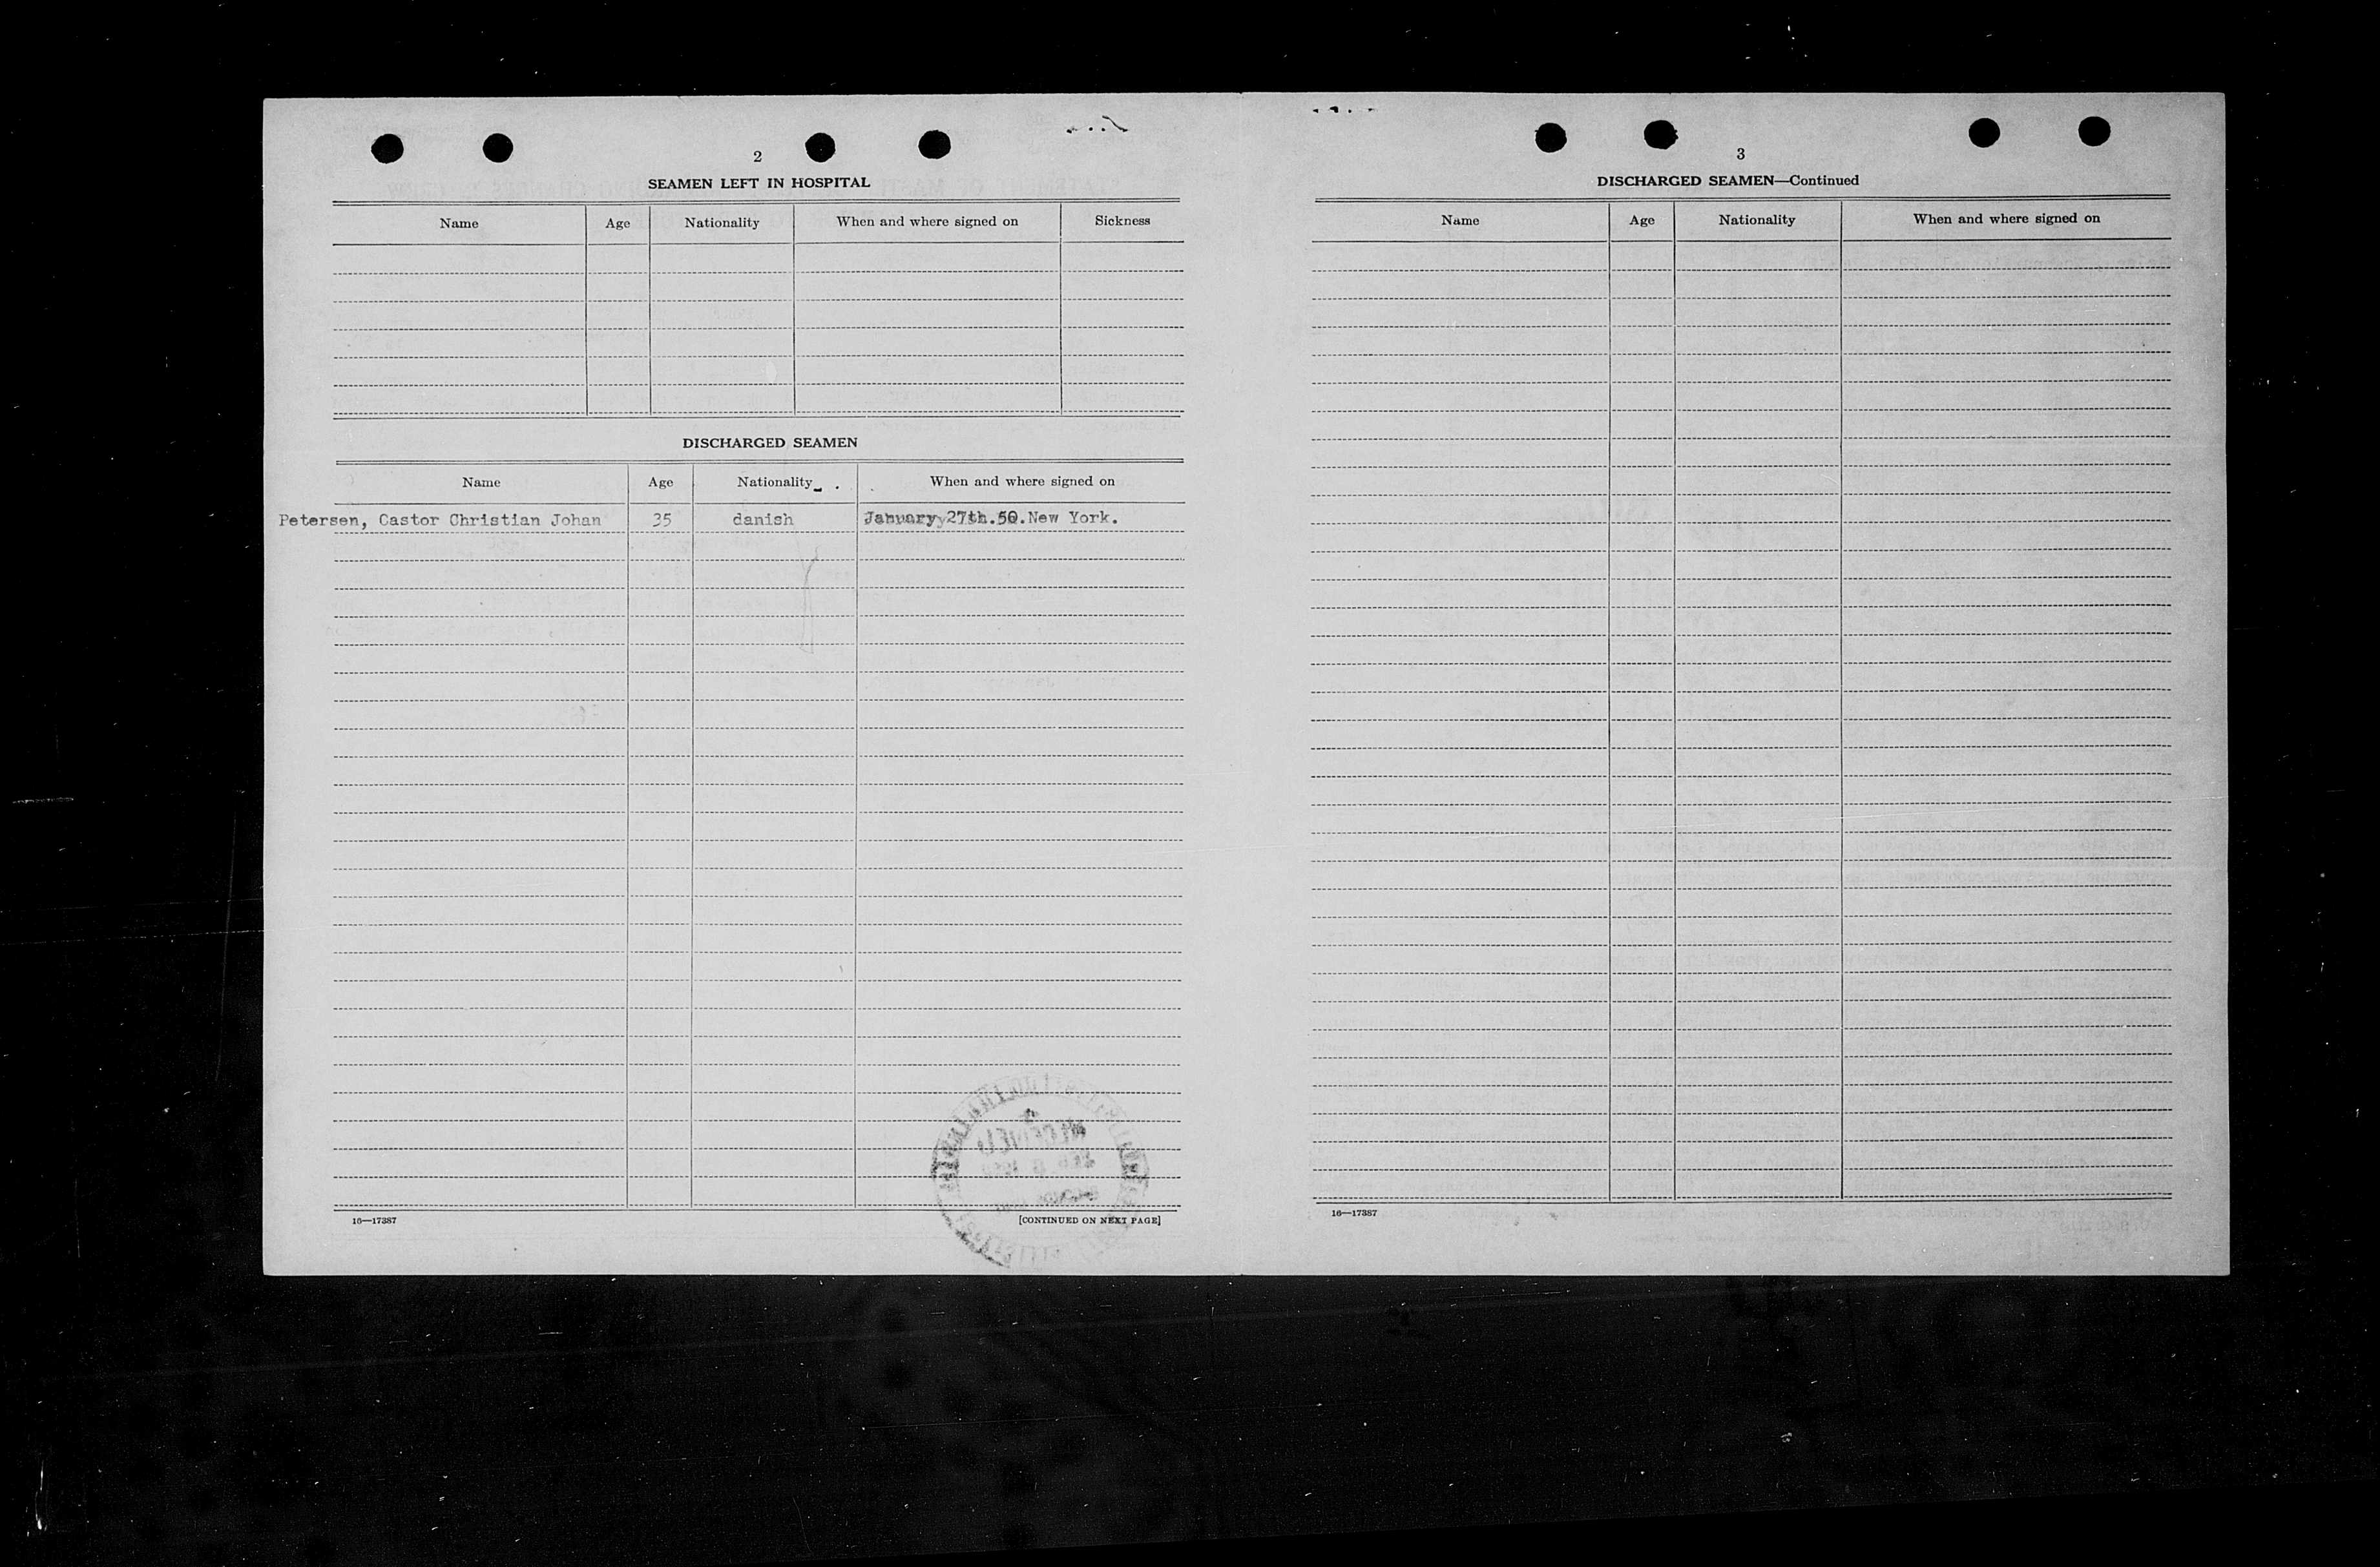 2
SEAMEN LEFT IN HOSPITAL
Name Age Nationality When and where signed on Sickness
DISCHARGED SEAMEN
Name Age Nationality When and where signed on
Petersen, Castor Christian Johan 35 danish January 27th.50.New York.
16—17387 [CONTINUED ON NEXT PAGE]
3
DISCHARGED SEAMEN—Continued
Name Age Nationality When and where signed on
16—17387